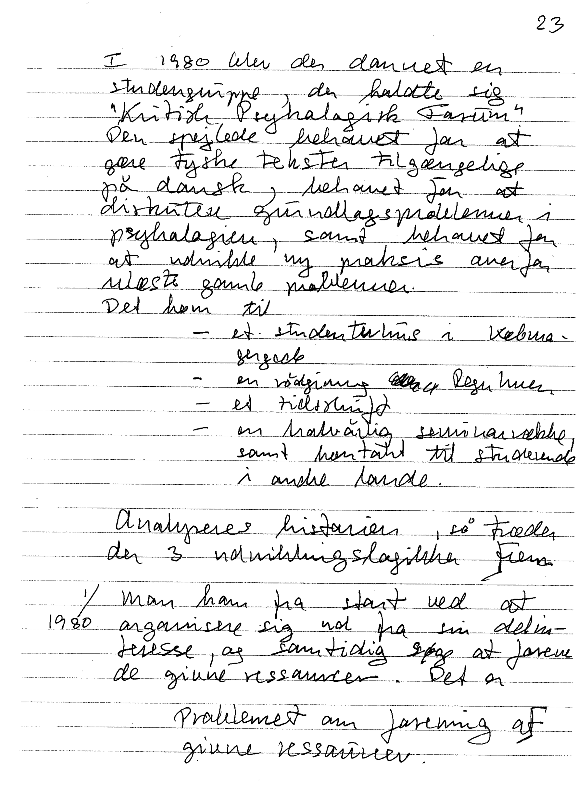 23
I 1980 blev der dannet en
studengruppe, der kaldte sig
"Kritisk Psykologisk Forum"
Den spejlede behovet for at
gøre tyske tekster tilgængelige
på dansk, behovet for at
diskutere grundlagsproblemer i
psykologien, samt behovet for
at udvikle ny praksis overfor
uløste gamle problemer.
Det kom til
– et studenterhus i Købma-
gergade
– en rådgivning Regnbuen
– et tidsskrift
– en halvårlig seminarrække,
samt kontakt til studerende
i andre lande.
Analyseres historien, så træder
der 3 udviklingslogikker frem
1/ Man kom fra start ved at
1980 organisere sig ud fra sin delin-
teresse, og samtidig søge at forene
de givne ressourcer. Det er
Problemet om forening af
givne ressourcer.